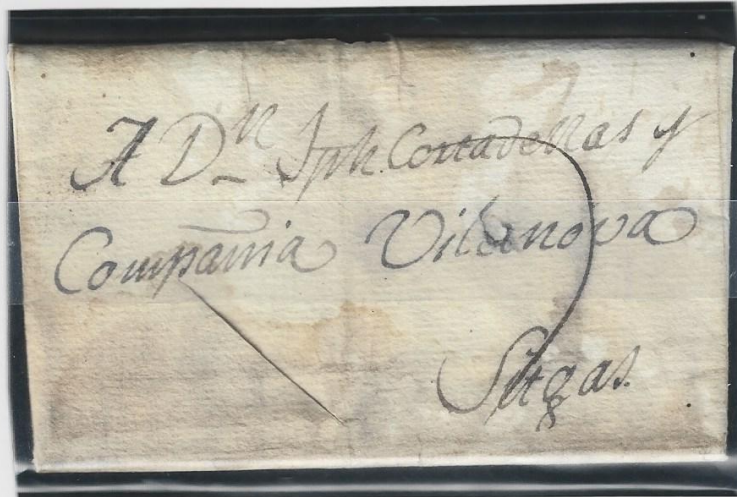 A Dn Jph Cortadellas y
Compañia Vilanova
Sitgas.